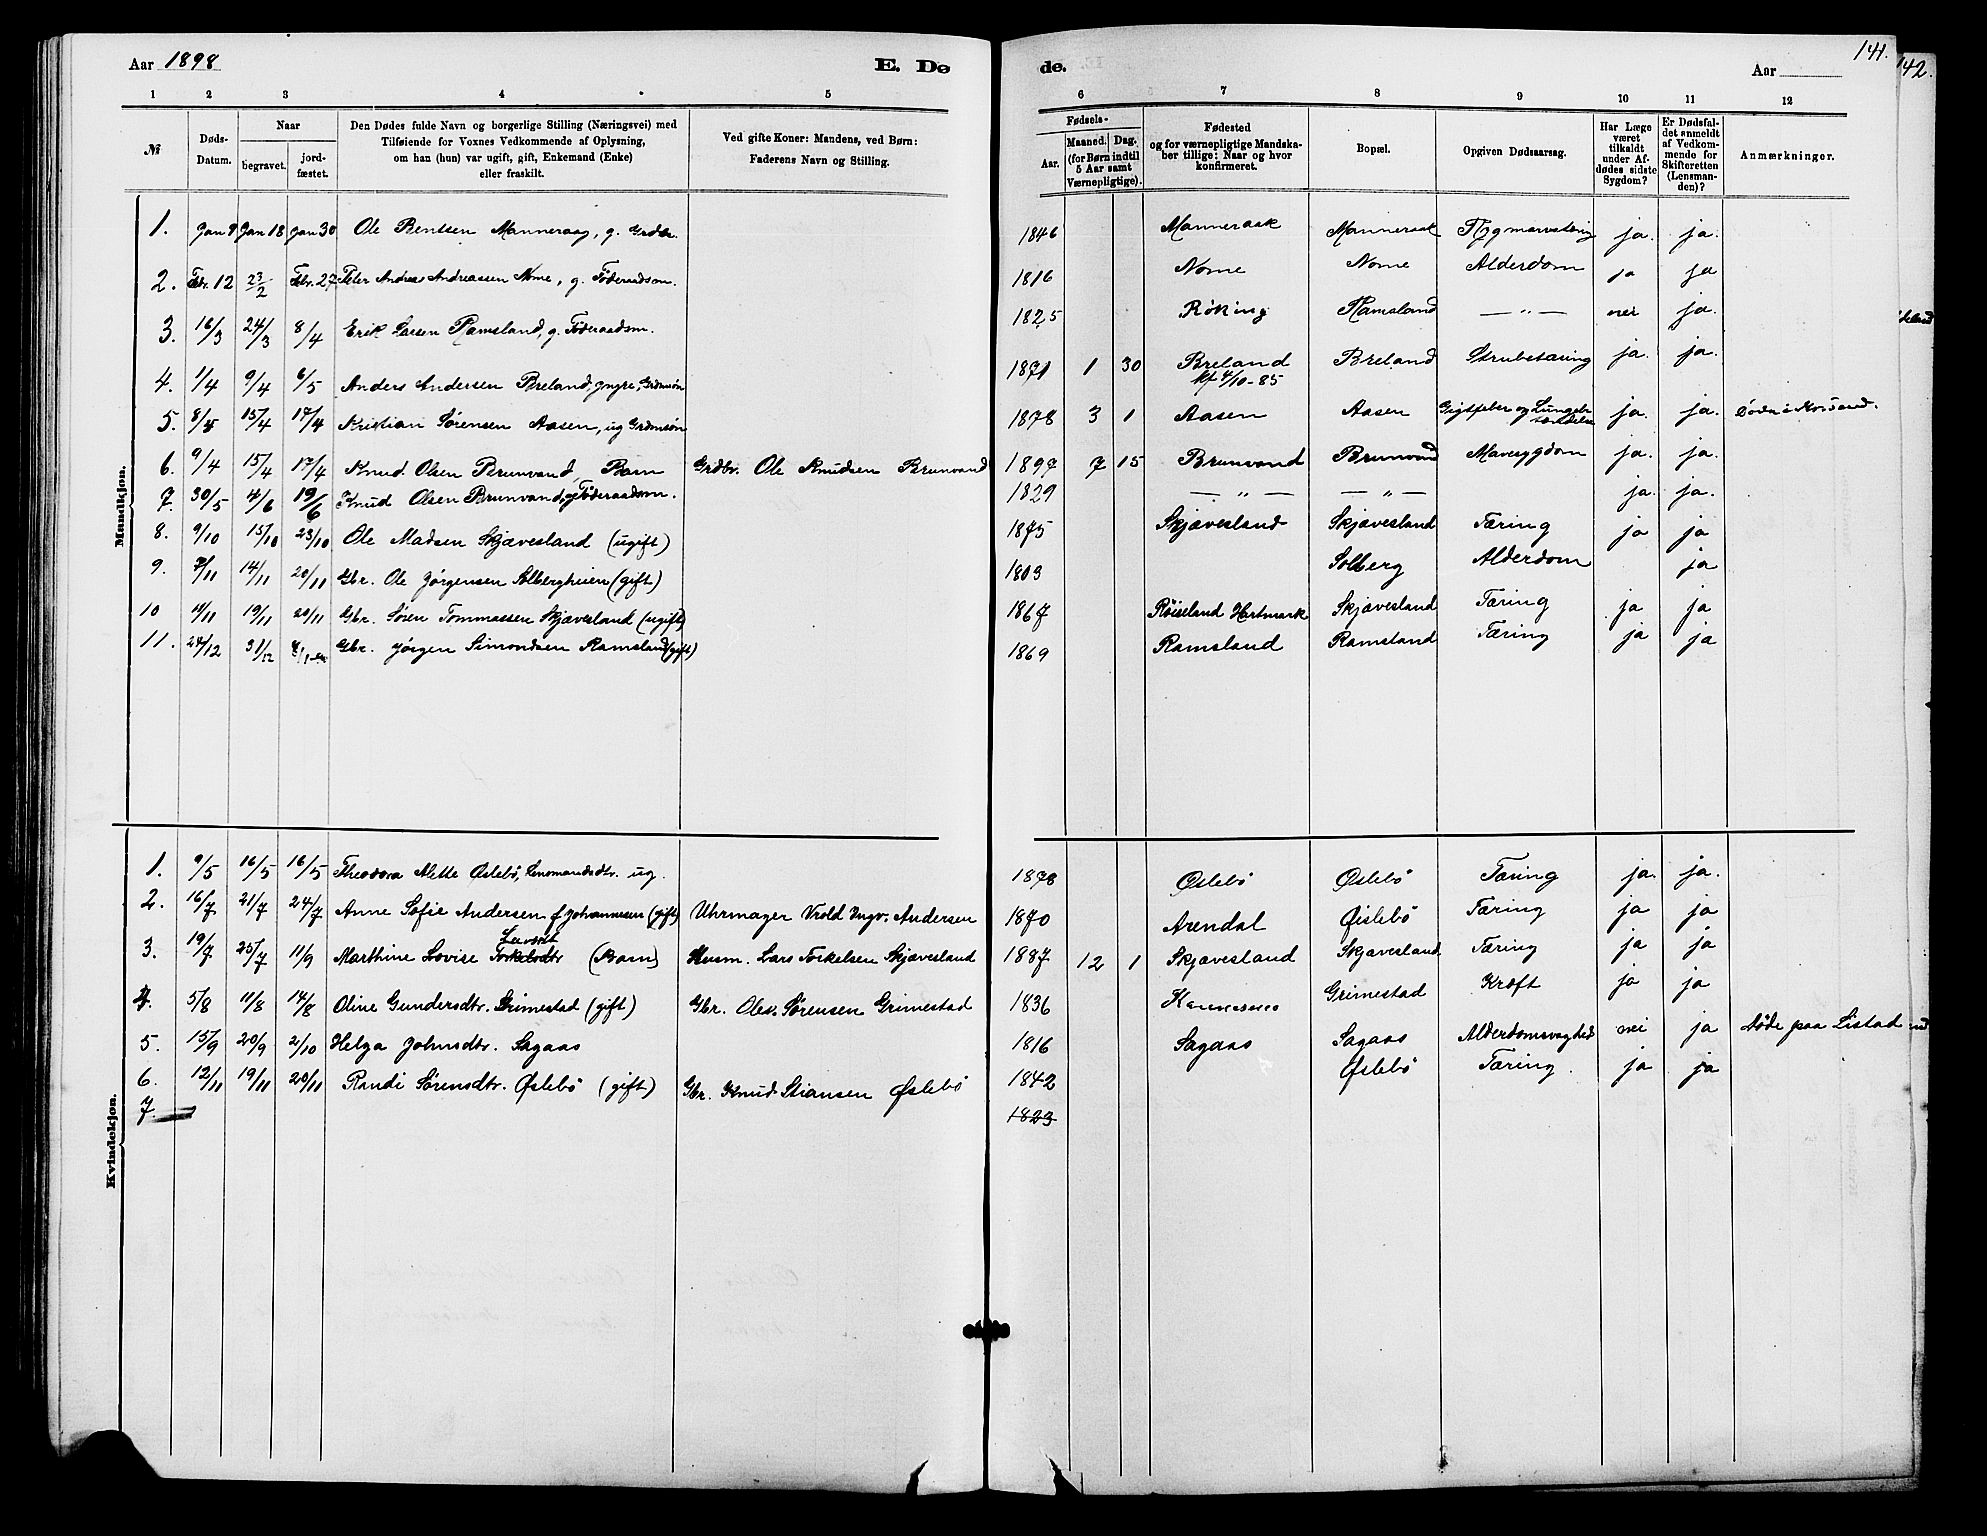 Aar 1898
E. Dø
de.
Aar
141.
142.
1 2 3 4 5 6 7 8 9 10 11 12
№
Døds-Datum.
Naar
begravet.
jord-fæstet.
Den Dødes fulde Navn og borgerlige Stilling (Næringsvei) med
Tilføiende for Voxnes Vedkommende af Oplysning,
om han (hun) var ugift, gift, Enkemand (Enke)
eller fraskilt.
Ved gifte Koner: Mandens, ved Børn:
Faderens Navn og Stilling.
Fødsels-
Aar.
Maaned. Dag.
(for Børn indtil
5 Aar samt
Værnepligtige).
Fødested
og for værnepligtige Mandska-
ber tillige: Naar og hvor
konfirmeret.
Bopæl.
Opgiven Dødsaarsag.
Har Læge
været
tilkaldt
under Af-
dødes sidste
Sygdom?
Er Dødsfal-
det anmeldt
af Vedkom-
mende for
Skifteretten
(Lensman-
den)?
Anmærkninger.
Mandkjøn.
1. Jan 9 Jan 18 Jan 30 Ole Bentsen Manneraag, g. Grdbr. 1846 Manneraak Manneraak ja. ja.
2. Febr. 12 23/2 Febr. 27 Peter Andreas Andreassen Nome, g. Föderaadsm. 1816 Nome Nome Alderdom ja ja
3. 16/3 24/3 8/4 Erik Larsen Ramsland, g. Föderaadsm. 1825 Röking Ramsland — „ — nei ja.
4. 1/4 9/4 6/5 Anders Andersen Breland, yngre, Grdmsön 1871 1 30 Breland Breland Strubetæring ja. ja.
kf 4/10-85
5. 8/4 15/4 17/4 Kristian Sörensen Aasen, ug Grdmsön 1878 3 1 Aasen Aasen Gigtfeber og Lungebetændelse ja. ja.
6. 9/4 15/4 17/4 Knud Olsen Brunvand, Barn Grdbr. Ole Knudsen Brunvand 1897 7 15 Brunvand Brunvand Mavesygdom ja. ja.
7. 30/5 4/6 19/6 Knud Olsen Brunvand, g Föderaadsm. 1829 — „ — — „ — ja. ja.
8. 9/10 15/10 23/10 Ole Madsen Skjævesland (ugift) 1875 Skjævesland Skjævesland Tæring ja ja
9. 7/11 14/11 20/11 Gbr. Ole Jörgensen Solbergheien (gift) 1803 Solberg Alderdom ja
10 11/11 19/11 20/11 Gbr. Sören Tommassen Skjævesland (ugift) 1867 Röiseland Hartmark Skjævesland Tæring ja ja
11. 24/12 31/12 Gbr. Jörgen Simondsen Ramsland (gift) 1869 Ramsland Ramsland Tæring ja ja
Kvindekjøn.
1. 9/5 16/5 16/5 Theodora Mette Øslebö, Lensmandsdtr. ug. 1878 Øslebö Øslebö Tæring ja. ja.
2. 16/7 21/7 24/7 Anne Sofie Andersen f. Johannesen (gift) Uhrmager Vrold Ingv. Andersen 1870 Arendal Øislebö Tæring ja ja
3. 19/7 25/7 11/9 Marthine Lovise Torkelsdtr (Barn) Husm. Lars Torkelsen Skjævesland 1887 12 1 Skjævesland Skjævesland Tæring ja ja
4. 5/8 11/8 14/8 Oline Gundersdtr. Grimestad (gift) Gbr. Oles Sørensen Grimestad 1836 Grimestad Kræft ja ja
5. 15/9 20/9 2/10 Helga Johnsdtr. Sagaas 1816 Sagaas Sagaas Alderdomsvaghed nei ja döde paa Listad
6. 12/11 19/11 20/11 Randi Sörensdtr. Øslebö (gift) Gbr. Knud Stiansen Øslebö 1842 Øslebö Tæring. ja ja
7. 1823